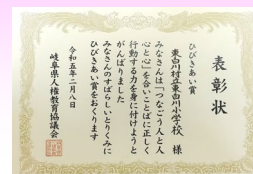 表彰状
ひびきあい賞
東白川村立東白川小学校 様
みなさんは「つなごう人と人
心と心」を合いことばに正しく
行動する力を身に付けようと
がんばりました
みなさんのすばらしいとりくみに
ひびきあい賞をおくります
令和五年二月八日
岐阜県人権教育協議会